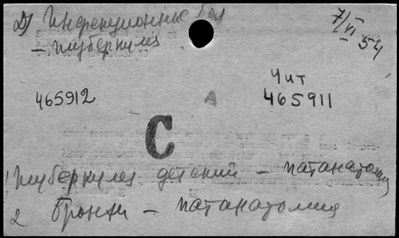 2) Инфекционные бол
7/VI 54
– туберкулез
465912
А
Чит
465911
С
1 туберкулез детский – патанатомия
2 Бронхи – патанатомия